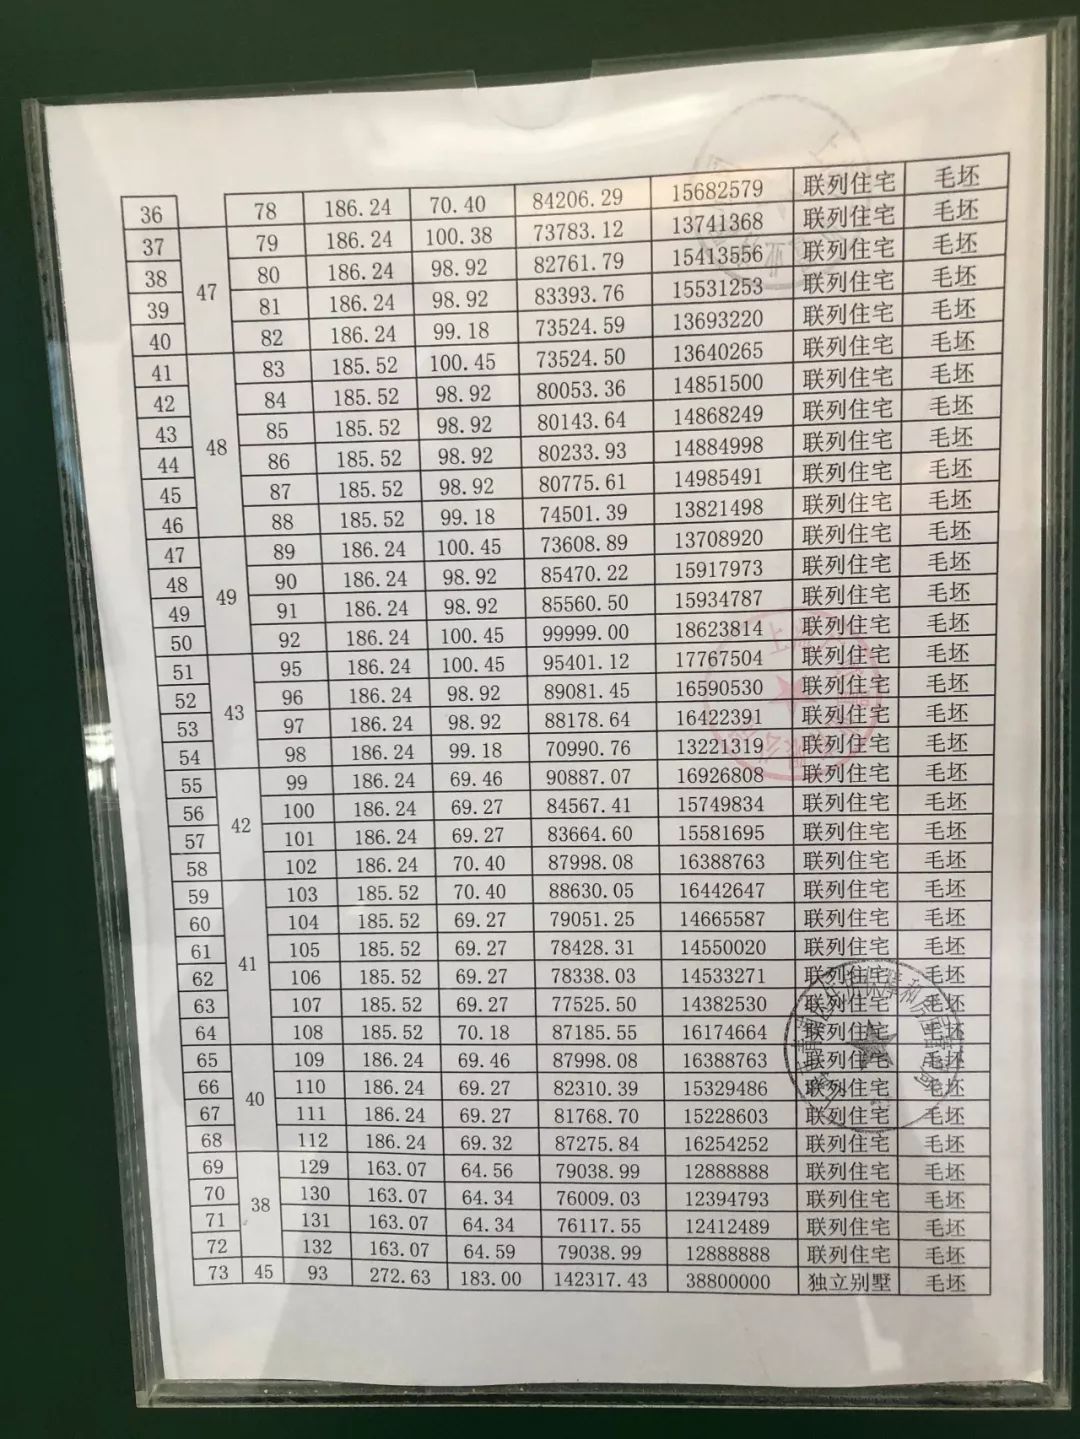 36 78 186.24 70.40 84206.29 15682579 联列住宅 毛坯
37 47 79 186.24 100.38 73783.12 13741368 联列住宅 毛坯
38 80 186.24 98.92 82761.79 15413556 联列住宅 毛坯
39 81 186.24 98.92 83393.76 15531253 联列住宅 毛坯
40 82 186.24 99.18 73524.59 13693220 联列住宅 毛坯
41 48 83 185.52 100.45 73524.50 13640265 联列住宅 毛坯
42 84 185.52 98.92 80053.36 14851500 联列住宅 毛坯
43 85 185.52 98.92 80143.64 14868249 联列住宅 毛坯
44 86 185.52 98.92 80233.93 14884998 联列住宅 毛坯
45 87 185.52 98.92 80775.61 14985491 联列住宅 毛坯
46 88 185.52 99.18 74501.39 13821498 联列住宅 毛坯
47 49 89 186.24 100.45 73608.89 13708920 联列住宅 毛坯
48 90 186.24 98.92 85470.22 15917973 联列住宅 毛坯
49 91 186.24 98.92 85560.50 15934787 联列住宅 毛坯
50 92 186.24 100.45 99999.00 18623814 联列住宅 毛坯
51 43 95 186.24 100.45 95401.12 17767504 联列住宅 毛坯
52 96 186.24 98.92 89081.45 16590530 联列住宅 毛坯
53 97 186.24 98.92 88178.64 16422391 联列住宅 毛坯
54 98 186.24 99.18 70990.76 13221319 联列住宅 毛坯
55 42 99 186.24 69.46 90887.07 16926808 联列住宅 毛坯
56 100 186.24 69.27 84567.41 15749834 联列住宅 毛坯
57 101 186.24 69.27 83664.60 15581695 联列住宅 毛坯
58 102 186.24 70.40 87998.08 16388763 联列住宅 毛坯
59 41 103 185.52 70.40 88630.05 16442647 联列住宅 毛坯
60 104 185.52 69.27 79051.25 14665587 联列住宅 毛坯
61 105 185.52 69.27 78428.31 14550020 联列住宅 毛坯
62 106 185.52 69.27 78338.03 14533271 联列住宅 毛坯
63 107 185.52 69.27 77525.50 14382530 联列住宅 毛坯
64 108 185.52 70.18 87185.55 16174664 联列住宅 毛坯
65 40 109 186.24 69.46 87998.08 16388763 联列住宅 毛坯
66 110 186.24 69.27 82310.39 15329486 联列住宅 毛坯
67 111 186.24 69.27 81768.70 15228603 联列住宅 毛坯
68 112 186.24 69.32 87275.84 16254252 联列住宅 毛坯
69 38 129 163.07 64.56 79038.99 12888888 联列住宅 毛坯
70 130 163.07 64.34 76009.03 12394793 联列住宅 毛坯
71 131 163.07 64.34 76117.55 12412489 联列住宅 毛坯
72 132 163.07 64.59 79038.99 12888888 联列住宅 毛坯
73 45 93 272.63 183.00 142317.43 38800000 独立别墅 毛坯